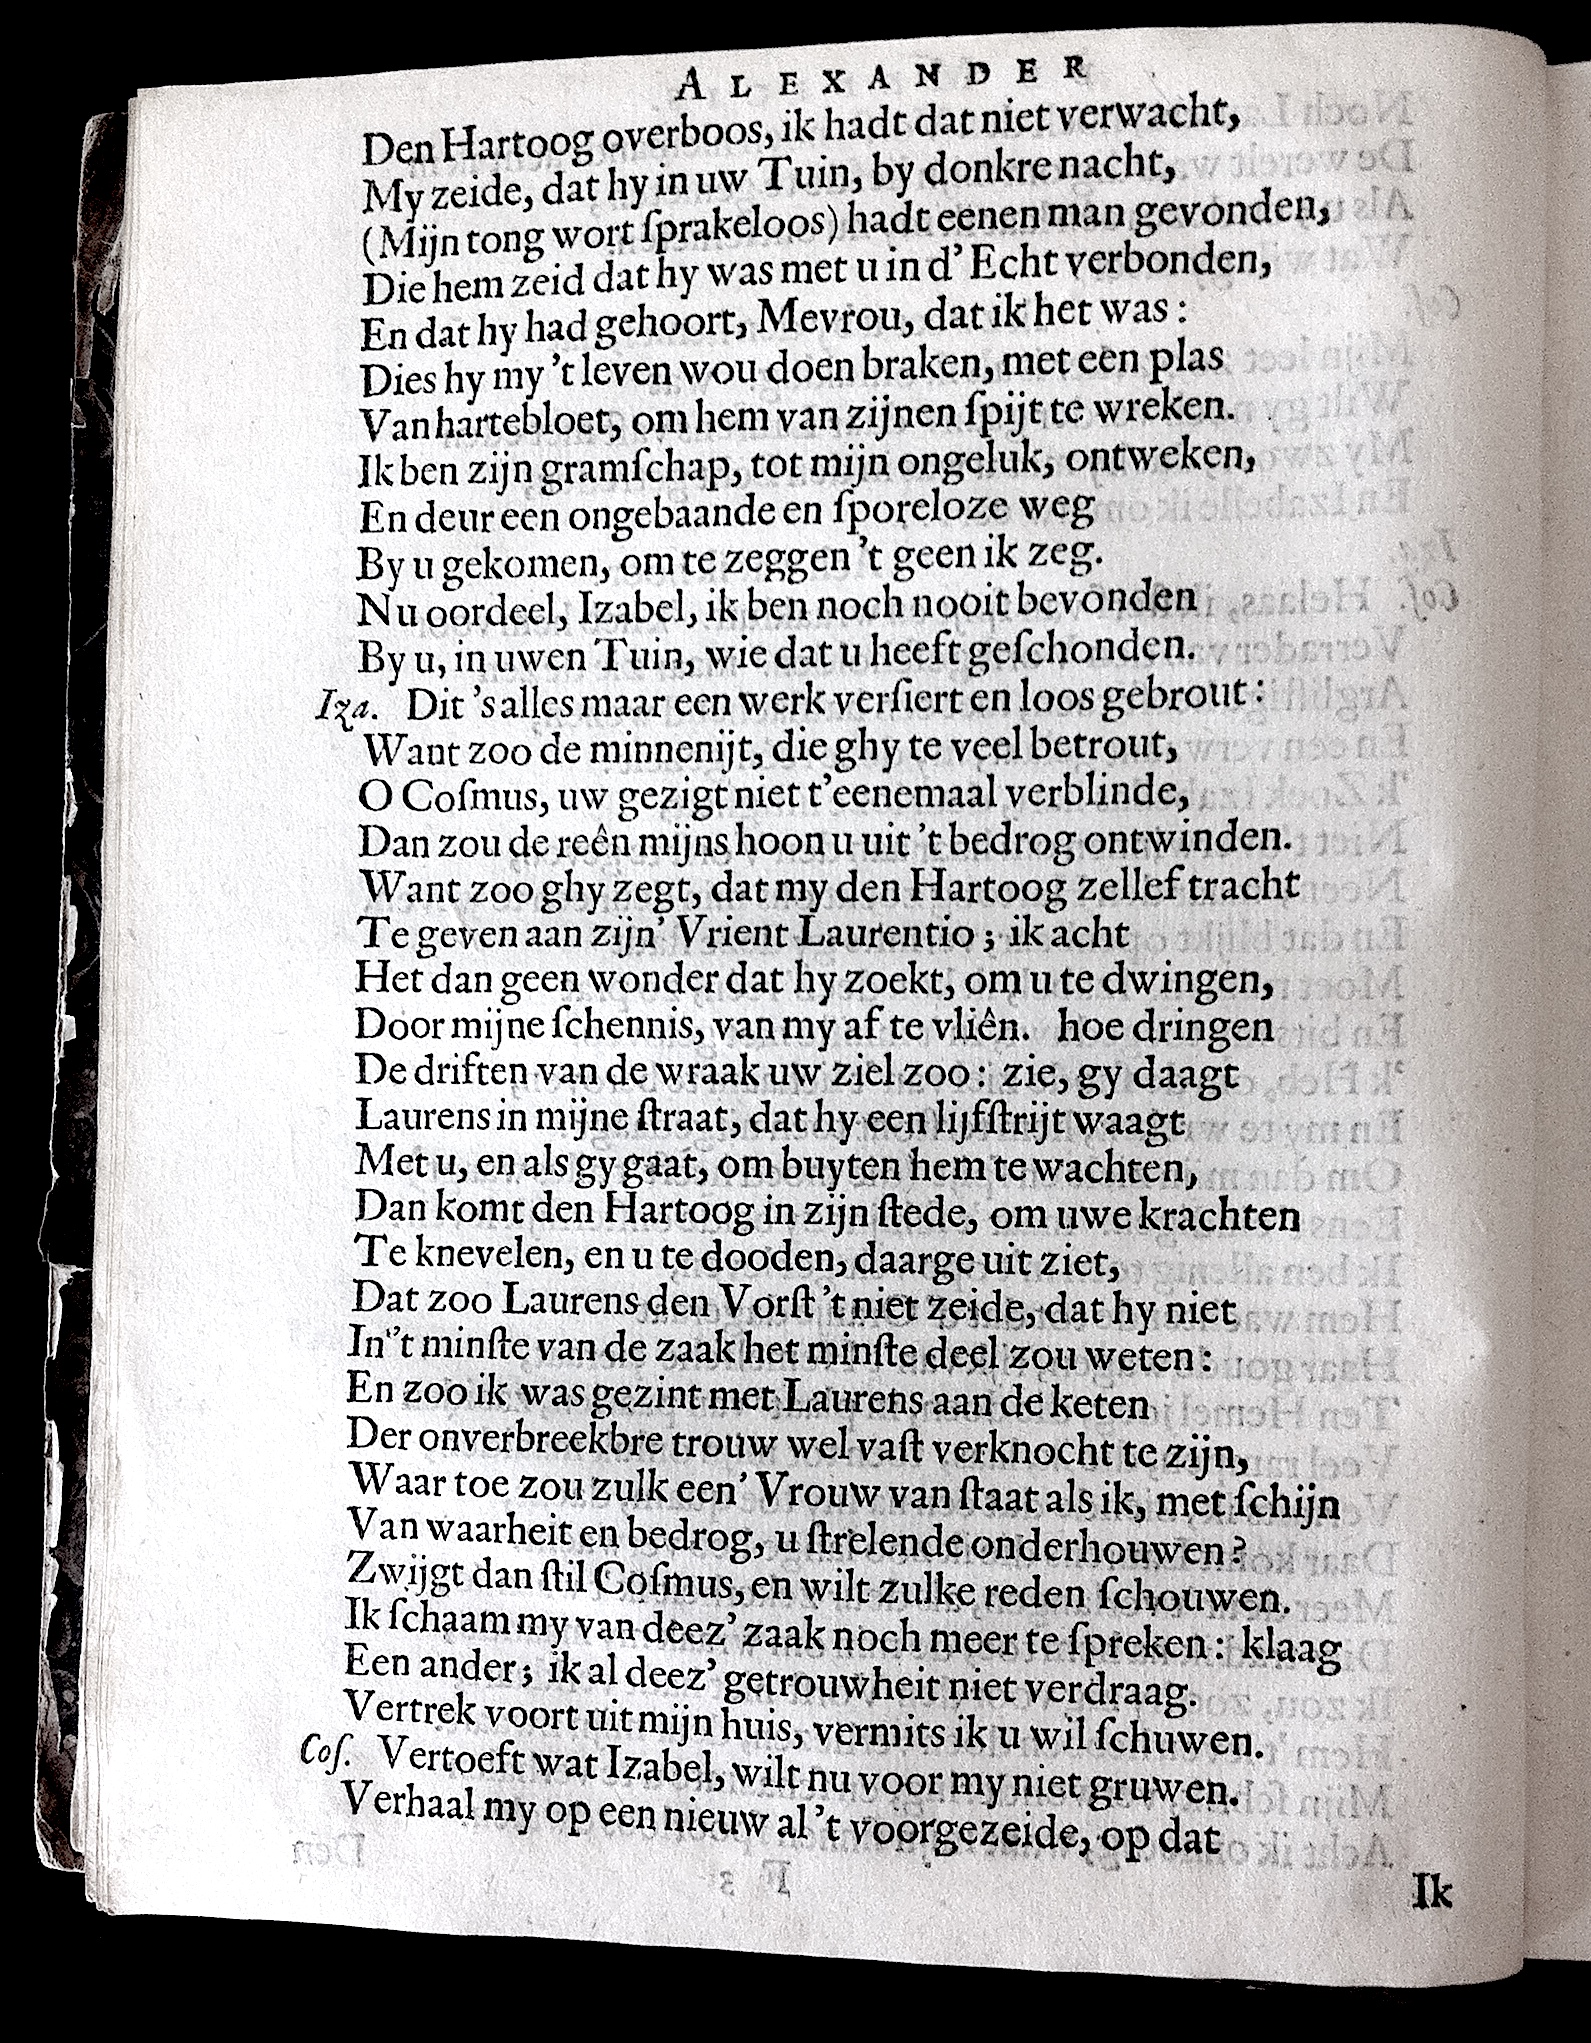 ALEXANDER
Den Hartoog overboos, ik hadt dat niet verwacht,
My zeide, dat hy in uw Tuin, by donkre nacht,
(Mijn tong wort ſprakeloos) hadt eenen man gevonden,
Die hem zeid dat hy was met u in d' Echt verbonden,
En dat hy had gehoort, Mevrou, dat ik het was:
Dies hy my 't leven wou doen braken, met een plas
Van hartebloet, om hem van zijnen ſpijt te wreken.
Ik ben zijn gramſchap, tot mijn ongeluk, ontweken,
En deur een ongebaande en ſporeloze weg
By u gekomen, om te zeggen 't geen ik zeg.
Nu oordeel, Izabel, ik ben noch nooit bevonden
By u, in uwen Tuin, wie dat u heeft geſchonden.
Iza. Dit 's alles maar een werk verſiert en loos gebrout:
Want zoo de minnenijt, die ghy te veel betrout,
O Coſmus, uw gezigt niet t'eenemaal verblinde,
Dan zou de reên mijns hoon u uit 't bedrog ontwinden.
Want zoo ghy zegt, dat my den Hartoog zellef tracht
Te geven aan zijn' Vrient Laurentio; ik acht
Het dan geen wonder dat hy zoekt, om u te dwingen,
Door mijne ſchennis, van my af te vliên. hoe dringen
De driften van de wraak uw ziel zoo: zie, gy daagt
Laurens in mijne ſtraat, dat hy een lijfſtrijt waagt
Met u, en als gy gaat, om buyten hem te wachten,
Dan komt den Hartoog in zijn ſtede, om uwe krachten
Te knevelen, en u te dooden, daarge uit ziet,
Dat zoo Laurens den Vorſt 't niet zeide, dat hy niet
In 't minſte van de zaak het minſte deel zou weten:
En zoo ik was gezint met Laurens aan de keten
Der onverbreekbre trouw wel vaſt verknocht te zijn,
Waar toe zou zulk een' Vrouw van ſtaat als ik, met ſchijn
Van waarheit en bedrog, u ſtrelende onderhouwen?
Zwijgt dan ſtil Coſmus, en wilt zulke reden ſchouwen.
Ik ſchaam my van deez' zaak noch meer te ſpreken: klaag
Een ander; ik al deez' getrouwheit niet verdraag.
Vertrek voort uit mijn huis, vermits ik u wil ſchuwen.
Coſ. Vertoeft wat Izabel, wilt nu voor my niet gruwen.
Verhaal my op een nieuw al 't voorgezeide, op dat
Ik